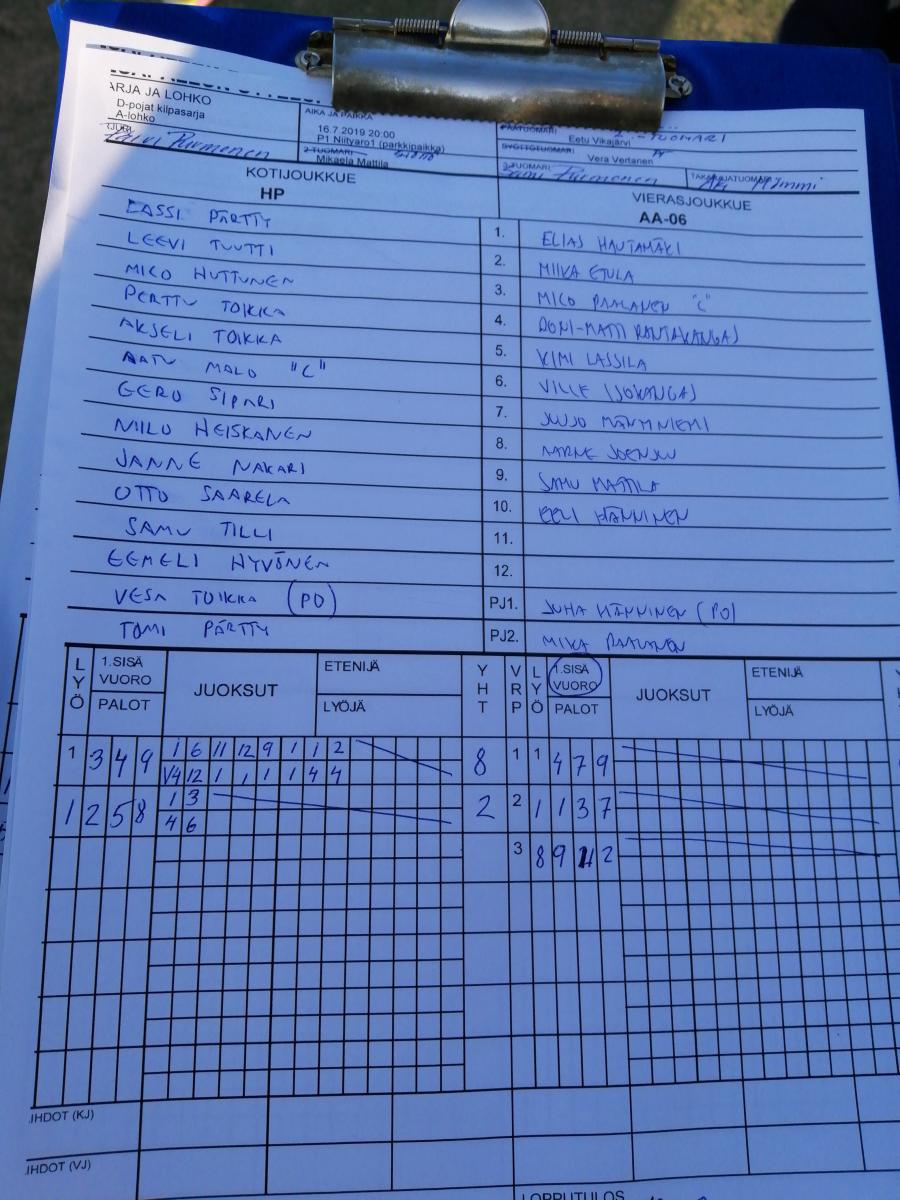 ARJA JA LOHKO
D-pojat kilpasarja
A-lohko
AIKA JA PAIKKA
16.7.2019 20:00
P1 Niityaro1 (parkkipaikka)
2-TUOMARI
Mikaela Mattila
PÄÄTUOMARI
Eetu Vikajärvi 2-TUOMARI
SYÖTTÖTUOMARI
Vera Vertanen
3-TUOMARI
KOTIJOUKKUE
HP
VIERASJOUKKUE
AA-06
LASSI PÄRTTY 1. ELIAS HAUTAMÄKI
LEEVI TUUTTI 2. MIIKA ETULA
MICO HUTTUNEN 3. MICO PAALANEN "C"
PERTTU TOIKKA 4. DONI-MATTI RANTAKANGAS
AKSELI TOIKKA 5. KIMI LASSILA
AATU MALO "C" 6. VILLE ISOKANGAS
GERO SIPARI 7. JUUSO MÄNTYNIEMI
NIILO HEISKANEN 8. AARNE JOENSUU
JANNE NAKARI 9. SAMU MATTILA
OTTO SAARELA 10. EELI HÄNNINEN
SAMU TILLI 11.
EEMELI HYVÖNEN 12.
VESA TOIKKA (PO) PJ1. JUHA HÄNNINEN (PO)
TOMI PÄRTTY PJ2. MIKA PAALANEN
LYÖ 1.SISÄ VUORO PALOT JUOKSUT ETENIJÄ LYÖJÄ YHT VRP LYÖ 1.SISÄ VUORO PALOT JUOKSUT ETENIJÄ LYÖJÄ
1 3 4 9 1 6 11 12 9 1 1 2 8 1 1 4 7 9
V4 12 1 1 1 1 4 4
1 2 5 8 1 3 2 2 1 1 3 7
4 6
3 8 9 2
IHDOT (KJ)
IHDOT (VJ)
LOPPUTULOS